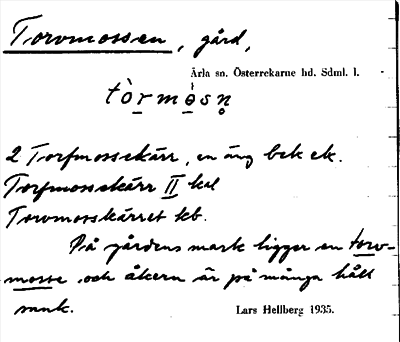 Torvmossen, gård,
Ärla sn. Österrekarne hd. Sdml. l.
tòrmòsn̥
2 Torfmossekärr, en äng bek ek.
Torfmossekärr II kal
Torvmosskärret kb.
På gårdens mark ligger en torv-
mosse, och åkern är på många håll
sank.
Lars Hellberg 1935.